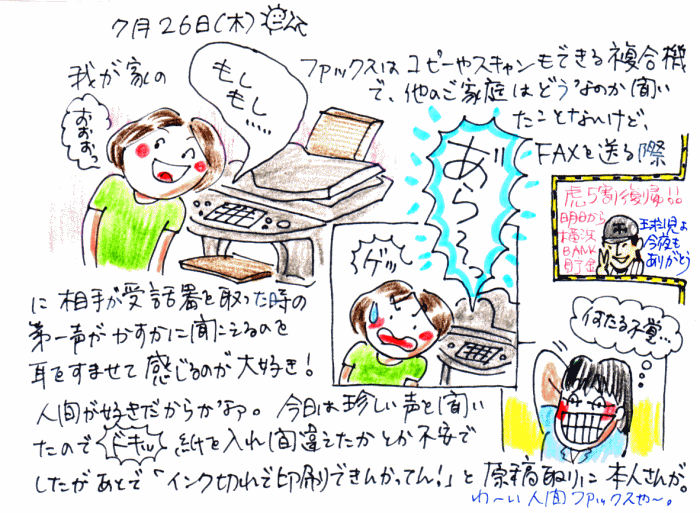 7月26日(木)
我が家の
ファックスはコピーやスキャンもできる複合機
で、他のご家庭はどうなのか聞い
たことないけど、
FAXを送る際
もし
もし……
おおおっ
あら〜っ
ゲッ
虎5割復帰!!
明日から
横浜
BANK
貯金
玉松児よ
今夜も
ありがとう
に相手が受話器を取った時の
第一声がかすかに聞こえるのを
耳をすませて感じるのが大好き!
人間が好きだからかなァ。今日は珍しい声を聞い
たのでドキッ 紙を入れ間違えたかとか不安で
したがあとで「インク切れで印刷できんかってん!」と原稿取りに本人さんが。
わ〜い人間ファックスや〜。
何たる不覚…